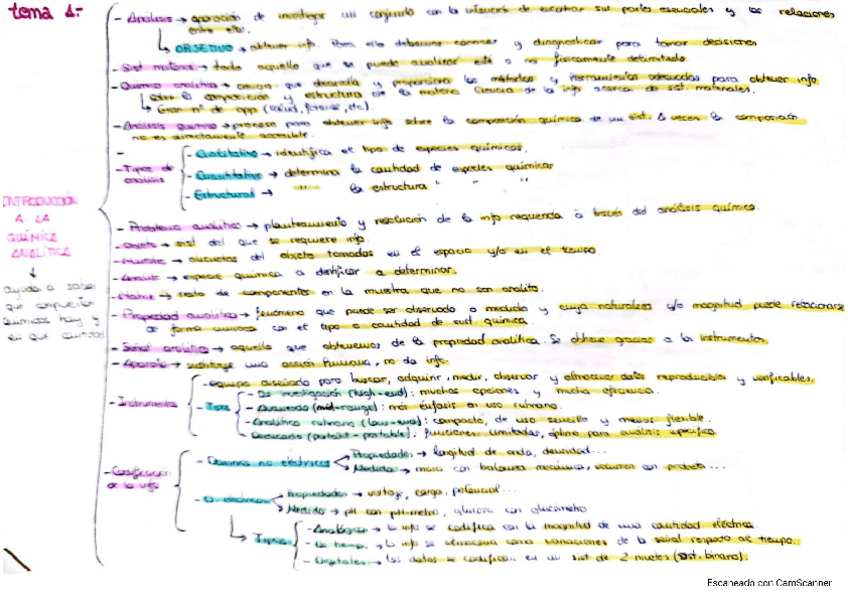 tema 1:-
- Análisis → operación de investigar un conjunto con la intención de encontrar sus partes esenciales y las relaciones
entre ellas.
↳ OBJETIVO → obtener info. Para ello debemos conocer y diagnosticar para tomar decisiones
- Sist material → todo aquello que se puede analizar esté o no físicamente delimitado.
- Química analítica → ciencia que desarrolla y proporciona los métodos y herramientas adecuadas para obtener info
sobre la composición y estructura de la materia. Ciencia de la info acerca de sist. materiales.
↳ Gran nº de app (salud, forense, etc)
- Análisis químico → proceso para obtener info sobre la composición química de un sist. A veces la composición
no es directamente accesible.
- Tipos de
análisis
- Cualitativo → identifica el tipo de especies químicas.
- Cuantitativo → determina la cantidad de especies químicas
- Estructural → " la estructura " "
INTRODUCCIÓN
A LA
QUÍMICA
ANALÍTICA
↓
ayuda a saber
que composición
químicas hay y
en qué cantidad
- Problema analítico → planteamiento y resolución de la info requerida a través del análisis químico.
- Objeto → sist del que se requiere info.
- Muestra → alícuotas del objeto tomadas en el espacio y/o en el tiempo
- Analito → especie química a determinar.
- Matriz → resto de componentes en la muestra que no son analito.
- Propiedad analítica → fenómeno que puede ser observado o medido y cuya naturaleza y/o magnitud puede relacionarse
de forma unívoca con el tipo o cantidad de sust química.
- Señal analítica → aquello que obtenemos de la propiedad analítica. Se obtiene gracias a los instrumentos.
- Aparato → sustituye una acción humana, no da info.
- Instrumentos
- equipo diseñado para buscar, adquirir, medir, observar y almacenar datos reproducibles y verificables.
- Tipos
- De investigación (high-end): muchas opciones y mucha eficiencia.
- Avanzado (mid-range): más énfasis en uso rutinario.
- Analítico rutinario (low-end): compacto, de uso sencillo y menos flexible.
- Dedicado (portátil - portable): funciones limitadas, óptimo para análisis específico
- Clasificación
de la info
- Dominio no eléctricos
Propiedades → longitud de onda, densidad...
Medida → masa con balanza mecánica, volumen con probeta...
- D. eléctricos
Propiedades → voltaje, carga, potencial...
Medida → pH con pH-metro, glucosa con glucómetro
↳ Tipos
- Analógico → la info se codifica con la magnitud de una cantidad eléctrica.
- De tiempo → la info se almacena como variaciones de la señal respecto al tiempo.
- Digitales → los datos se codifican en un sist de 2 niveles (sist. binario).
Escaneado con CamScanner